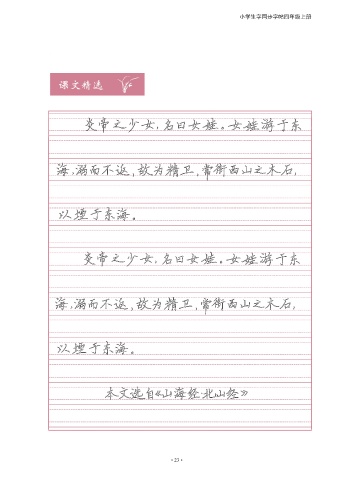 小学生字同步字帖四年级上册
课文精选
炎帝之少女,名曰女娃。女娃游于东
海,溺而不返,故为精卫,常衔西山之木石,
以堙于东海。
炎帝之少女,名曰女娃。女娃游于东
海,溺而不返,故为精卫,常衔西山之木石,
以堙于东海。
本文选自《山海经·北山经》
·23·